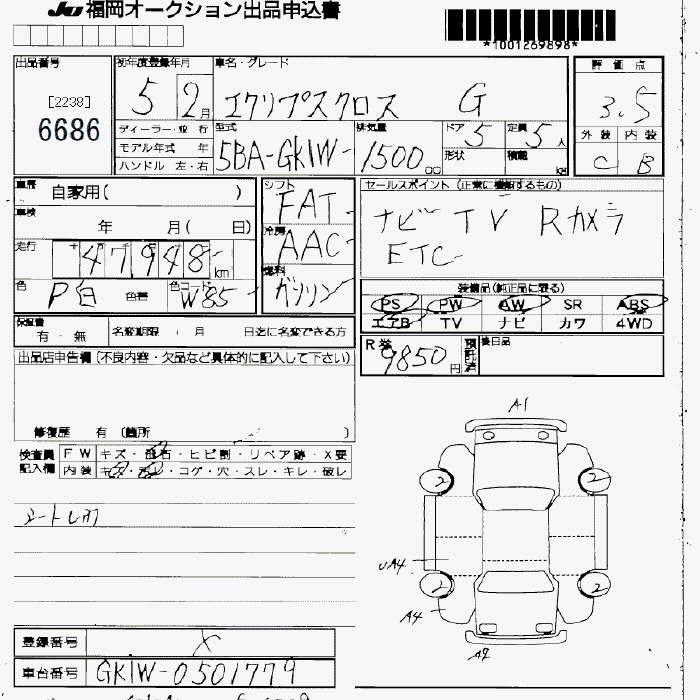 JU 福岡オークション出品申込書
*1001269898*
出品番号
[2238]
6686
初年度登録年月
5 2月
車名・グレード
エクリプスクロス G
評価点
3.5
外装 内装
C B
ディーラー・並行
モデル年式 年
ハンドル 左・右
型式
5BA-GK1W-
排気量
1500 cc
ドア
5
形状
定員
5人
積載
kg
車歴 自家用( )
車検 年 月( 日)
走行
47948 km
色 P白 色替
色コード W85
シフト FAT
冷房 AAC
燃料 ガソリン
セールスポイント (正常に機能するもの)
ナビ TV Rカメラ
ETC
装備品(純正品に限る)
PS PW AW SR ABS
エアB TV ナビ カワ 4WD
保証書
有・無
名変期限 月 日迄に名変できる方
R券
9850円
預託済
後日品
出品店申告欄 (不良内容・欠品など具体的に記入して下さい)
修復歴 有 (箇所 )
検査員
記入欄
FW キズ・飛石・ヒビ割・リペア跡・X要
内装 キズ・汚レ・コゲ・穴・スレ・キレ・破レ
A1
2 2
UA4
2 2
A4
A2
登録番号 X
車台番号 GK1W-0501779